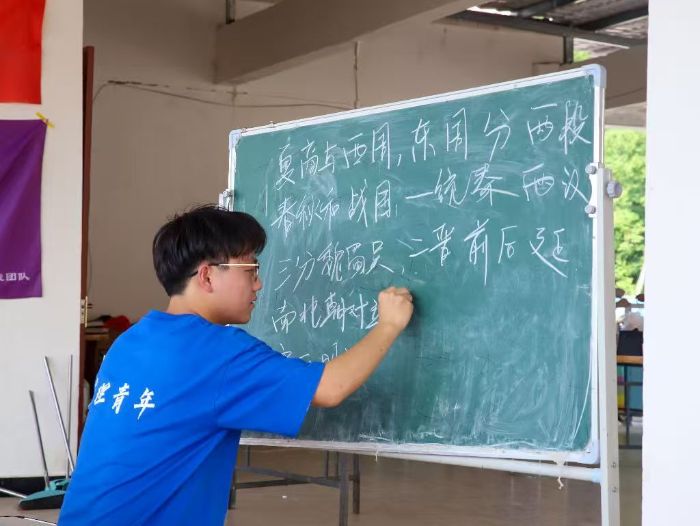 夏商与西周,东周分两段
春秋和战国,一统秦两汉
三分魏蜀吴,二晋前后延
南北朝对
青年
团队